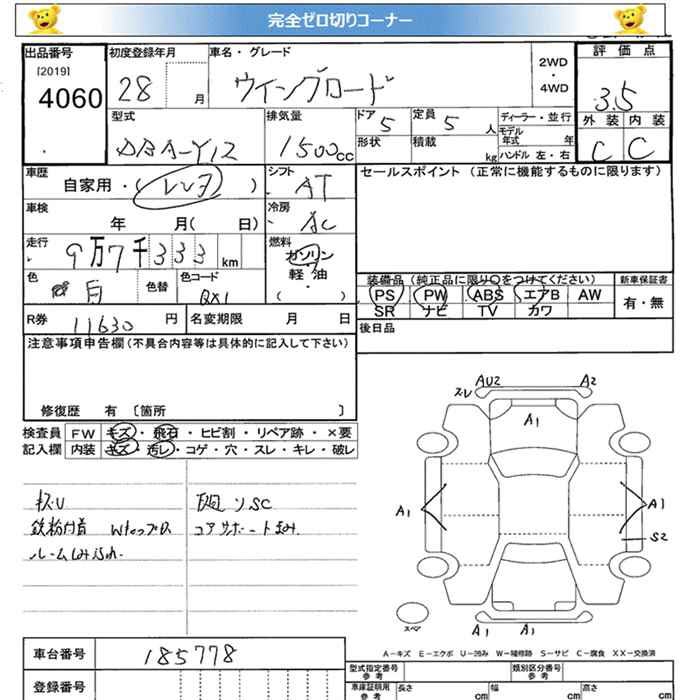 完全ゼロ切りコーナー
出品番号
[2019]
4060
初度登録年月
28 月
車名・グレード
ウイングロード
2WD
・
4WD
評価点
3.5
外装 内装
C C
型式
DBA-Y12
排気量
1500cc
ドア 5
形状
定員 5 人
積載 kg
ディーラー・並行
モデル年式 年
ハンドル 左・右
車歴
自家用・(レンタ)
シフト
AT
セールスポイント(正常に機能するものに限ります)
車検
年 月( 日)
冷房
AC
走行
9万7千333km
燃料
ガソリン
軽油
( ・ )
色
白
色替
色コード
QX1
装備品(純正品に限り○をつけてください)
PS PW ABS エアB AW
SR ナビ TV カワ
新車保証書
有・無
R券 11630円
名変期限 月 日
後日品
注意事項申告欄(不具合内容等は具体的に記入して下さい)
修復歴 有 〔箇所 〕
検査員 FW キズ・飛石・ヒビ割・リペア跡・×要
記入欄 内装 キズ・汚レ・コゲ・穴・スレ・キレ・破レ
キズU
鉄粉付着
ルームしみ
下廻りSC
コアサポート
スレ AU2 A2
A1
A1 A1
S2
スペア
A1 A1
A-キズ E-エクボ U-凹み W-補修跡 S-サビ C-腐食 XX-交換済
車台番号 185778
登録番号
型式指定番号
参考
類別区分番号
参考
車庫証明用
参考
長さ cm 幅 cm 高さ cm